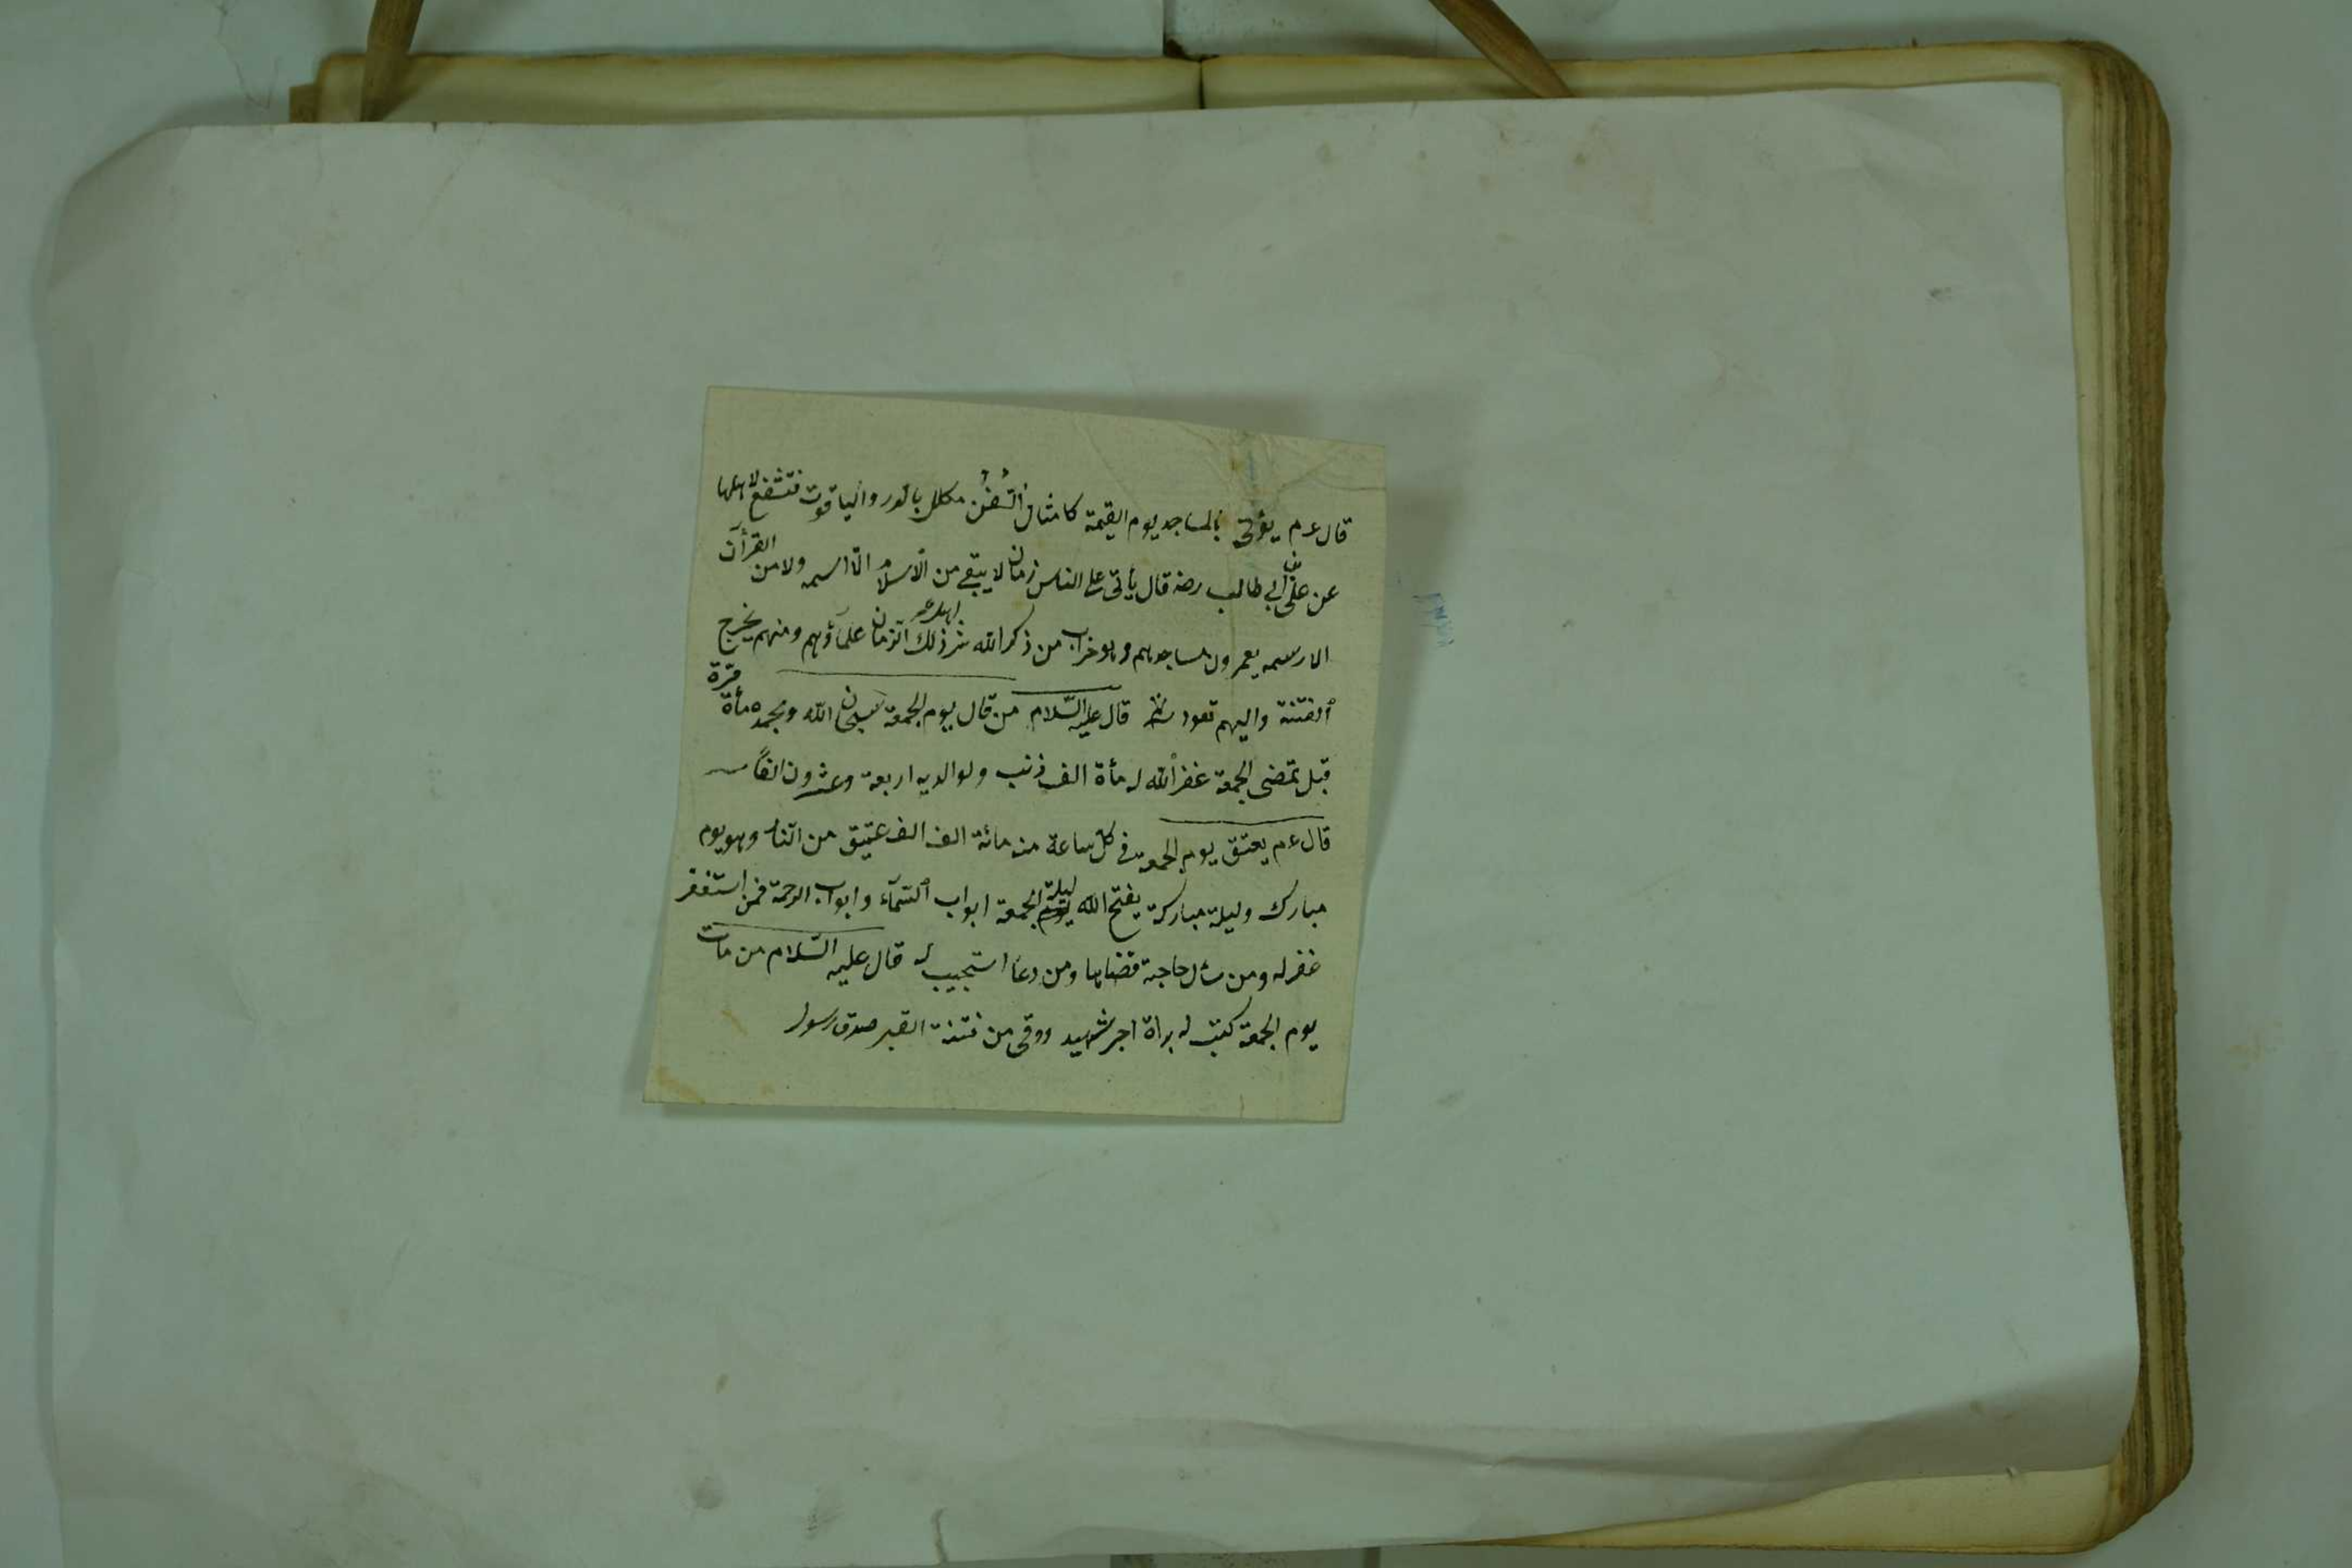 قال عم يؤتى بالمساجد يوم القيمة كامثال السُفُن مكلل بالدر والياقوت فتشفع لاهلها
عن على بن ابي طالب رضه قال يأتى على الناس زمان لا يبقى من الاسلام الّا اسمه ولا من القرأن
الا رسمه يعمرون مساجدهم وهو خراب من ذكر الله شر اهل ذلك الزمان علمآؤهم ومنهم يخرج
الفتنة واليهم تعود قال عليه السّلام من قال يوم الجمعة سبحان الله وبحمده مأة مرّة
قبل تمضى الجمعة غفر الله له مأة الف ذنب ولوالديه اربعة وعشرون الفاً
قال عم يعتق يوم الجمعة فى كل ساعة من مائة الف الف عتيق من النار وهو يوم
مبارك وليلة مباركة يفتح الله ليلة الجمعة ابواب السّمآء وابواب الرحمة فمن استغفر
غفر له ومن سأل حاجة قضاها ومن دعا استجيب له قال عليه السّلام من مات
يوم الجمعة كتب له براة اجر شهيد ووقى من فتنة القبر صدق رسول